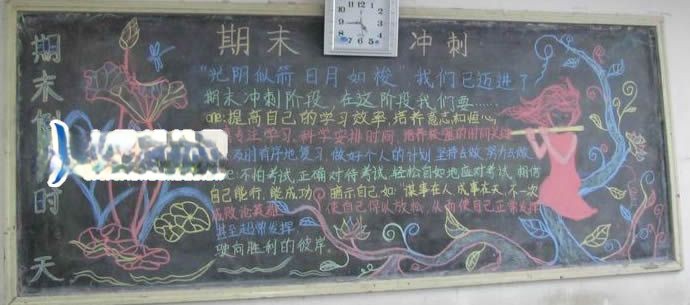 期末倒 时 天
期末 冲刺
"光阴似箭 日月如梭" 我们已迈进了
期末冲刺阶段,在这阶段我们要……
提高自己的学习效率,培养意志和恒心,
专注学习,科学安排时间,培养 的时间
及时有序地复习,做好个人的计划 坚持去做,努力去做
不怕考试,正确对待考试,轻松自如地应对考试,相信
自己能行,能成功 暗示自己,如:"谋事在人,成事在天,不一次
成败论英雄 使自己保以放松,从而使自己正常发挥
甚至超常发挥
驶向胜利的彼岸